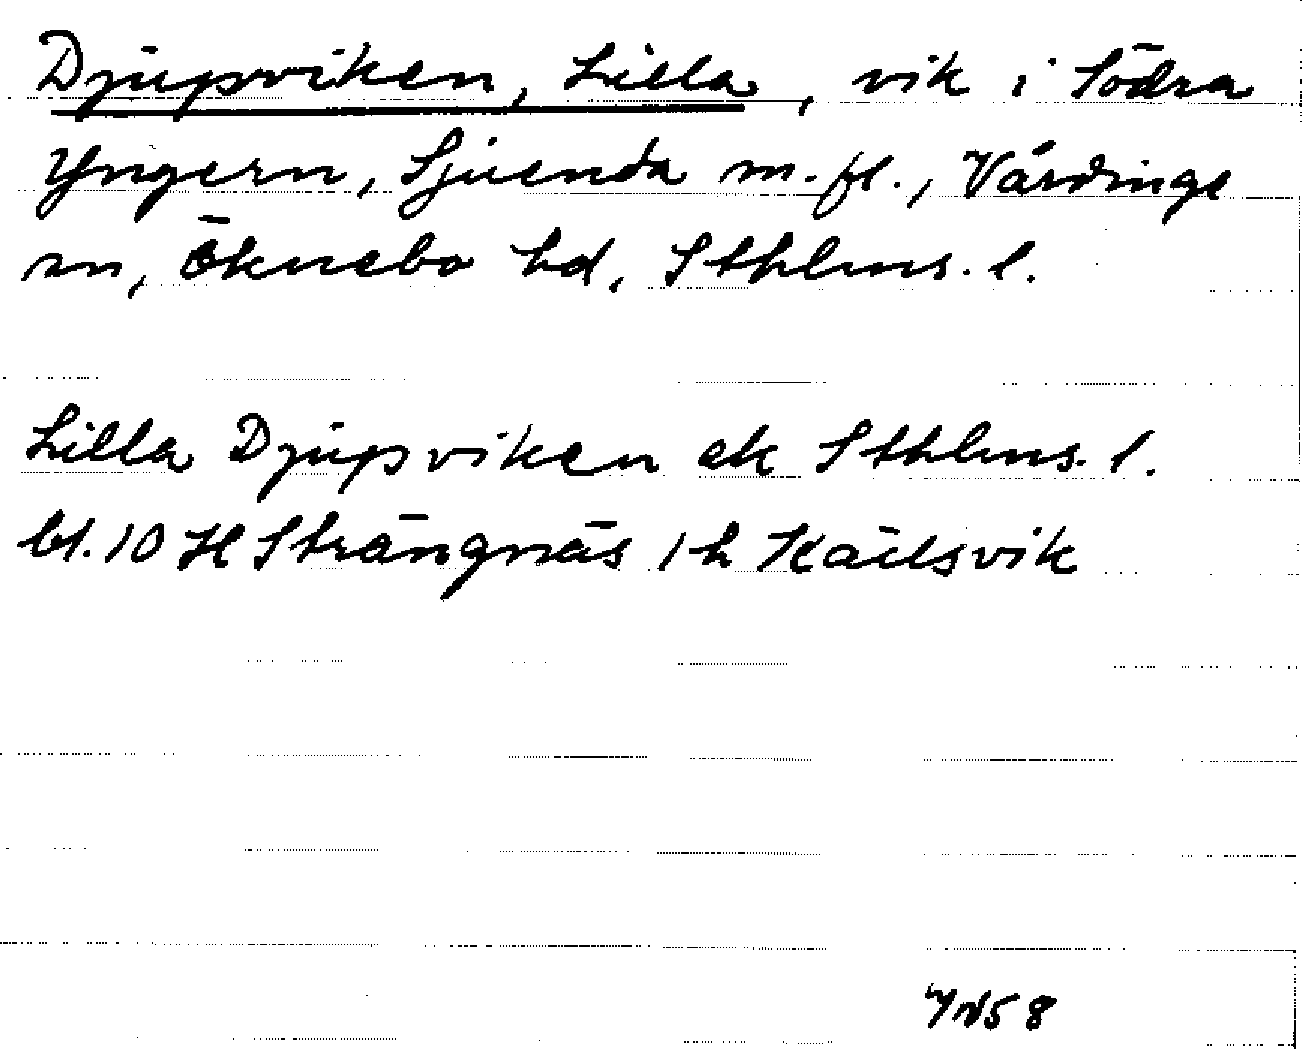 Djupviken, Lilla, vik i Södra
Yngern, Sjuenda m.fl., Vårdinge
sn, Öknebo hd, Sthlms. l.
Lilla Djupviken ek Sthlms. l.
bl. 10 H Strängnäs 1 h Källsvik
58